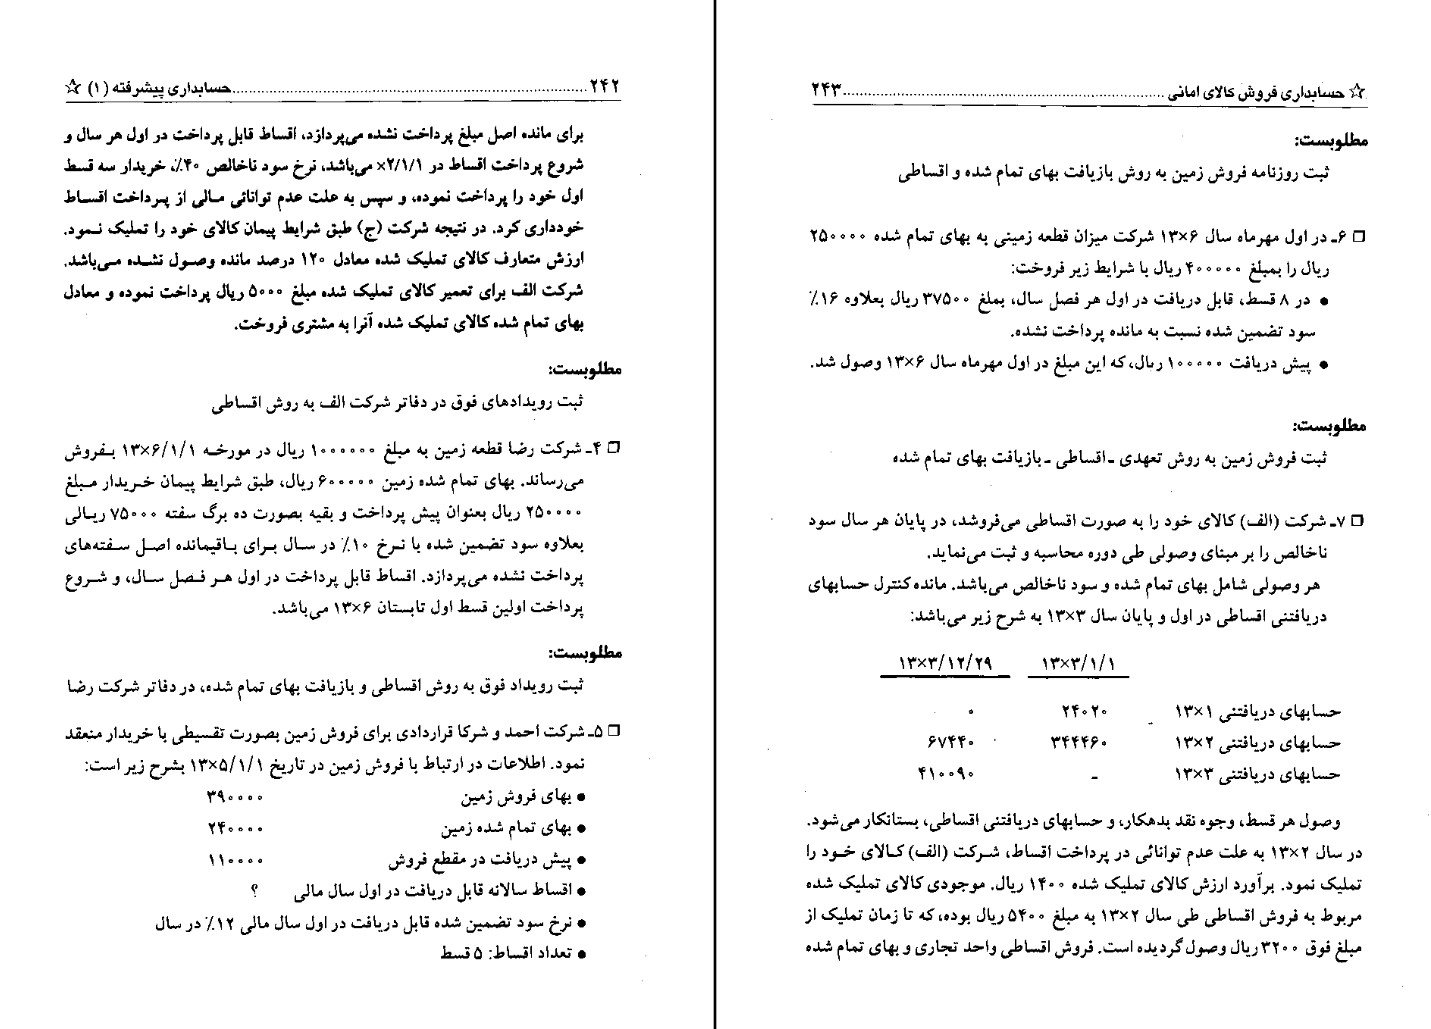 ۲۴۲..........حسابداری پیشرفته (۱) ☆
برای مانده اصل مبلغ پرداخت نشده می‌پردازد، اقساط قابل پرداخت در اول هر سال و
شروع پرداخت اقساط در ×۲/۱/۱ می‌باشد، نرخ سود ناخالص ۴۰٪، خریدار سه قسط
اول خود را پرداخت نموده، و سپس به علت عدم توانائی مالی از پرداخت اقساط
خودداری کرد. در نتیجه شرکت (ج) طبق شرایط پیمان کالای خود را تملیک نمود.
ارزش متعارف کالای تملیک شده معادل ۱۲۰ درصد مانده وصول نشده می‌باشد.
شرکت الف برای تعمیر کالای تملیک شده مبلغ ۵۰۰۰ ریال پرداخت نموده و معادل
بهای تمام شده کالای تملیک شده آنرا به مشتری فروخت.
مطلوبست:
ثبت رویدادهای فوق در دفاتر شرکت الف به روش اقساطی
❒ ۴ـ شرکت رضا قطعه زمین به مبلغ ۱۰۰۰۰۰۰ ریال در مورخه ۱۳×۶/۱/۱ بفروش
می‌رساند. بهای تمام شده زمین ۶۰۰۰۰۰ ریال، طبق شرایط پیمان خریدار مبلغ
۲۵۰۰۰۰ ریال بعنوان پیش پرداخت و بقیه بصورت ده برگ سفته ۷۵۰۰۰ ریالی
بعلاوه سود تضمین شده با نرخ ۱۰٪ در سال برای باقیمانده اصل سفته‌های
پرداخت نشده می‌پردازد. اقساط قابل پرداخت در اول هر فصل سال، و شروع
پرداخت اولین قسط اول تابستان ۱۳×۶ می‌باشد.
مطلوبست:
ثبت رویداد فوق به روش اقساطی و بازیافت بهای تمام شده، در دفاتر شرکت رضا
❒ ۵ـ شرکت احمد و شرکا قراردادی برای فروش زمین بصورت تقسیطی با خریدار منعقد
نمود. اطلاعات در ارتباط با فروش زمین در تاریخ ۱۳×۵/۱/۱ بشرح زیر است:
● بهای فروش زمین ۳۹۰۰۰۰
● بهای تمام شده زمین ۲۴۰۰۰۰
● پیش دریافت در مقطع فروش ۱۱۰۰۰۰
● اقساط سالانه قابل دریافت در اول سال مالی ؟
● نرخ سود تضمین شده قابل دریافت در اول سال مالی ۱۲٪ در سال
● تعداد اقساط: ۵ قسط
☆ حسابداری فروش کالای امانی..........۲۴۳
مطلوبست:
ثبت روزنامه فروش زمین به روش بازیافت بهای تمام شده و اقساطی
❒ ۶ـ در اول مهرماه سال ۱۳×۶ شرکت میزان قطعه زمینی به بهای تمام شده ۲۵۰۰۰۰
ریال را بمبلغ ۴۰۰۰۰۰ ریال با شرایط زیر فروخت:
● در ۸ قسط، قابل دریافت در اول هر فصل سال، بمبلغ ۳۷۵۰۰ ریال بعلاوه ۱۶٪
سود تضمین شده نسبت به مانده پرداخت نشده.
● پیش دریافت ۱۰۰۰۰۰ ریال، که این مبلغ در اول مهرماه سال ۱۳×۶ وصول شد.
مطلوبست:
ثبت فروش زمین به روش تعهدی ـ اقساطی ـ بازیافت بهای تمام شده
❒ ۷ـ شرکت (الف) کالای خود را به صورت اقساطی می‌فروشد، در پایان هر سال سود
ناخالص را بر مبنای وصولی طی دوره محاسبه و ثبت می‌نماید.
هر وصولی شامل بهای تمام شده و سود ناخالص می‌باشد. مانده کنترل حسابهای
دریافتنی اقساطی در اول و پایان سال ۱۳×۳ به شرح زیر می‌باشد:
۱۳×۳/۱/۱ ۱۳×۳/۱۲/۲۹
حسابهای دریافتنی ۱۳×۱ ۲۴۰۲۰ ۰
حسابهای دریافتنی ۱۳×۲ ۳۴۴۴۶۰ ۶۷۴۴۰
حسابهای دریافتنی ۱۳×۳ ـ ۴۱۰۰۹۰
وصول هر قسط، وجوه نقد بدهکار، و حسابهای دریافتنی اقساطی، بستانکار می‌شود.
در سال ۱۳×۲ به علت عدم توانائی در پرداخت اقساط، شرکت (الف) کالای خود را
تملیک نمود. برآورد ارزش کالای تملیک شده ۱۴۰۰ ریال. موجودی کالای تملیک شده
مربوط به فروش اقساطی طی سال ۱۳×۲ به مبلغ ۵۴۰۰ ریال بوده، که تا زمان تملیک از
مبلغ فوق ۳۲۰۰ ریال وصول گردیده است. فروش اقساطی واحد تجاری و بهای تمام شده